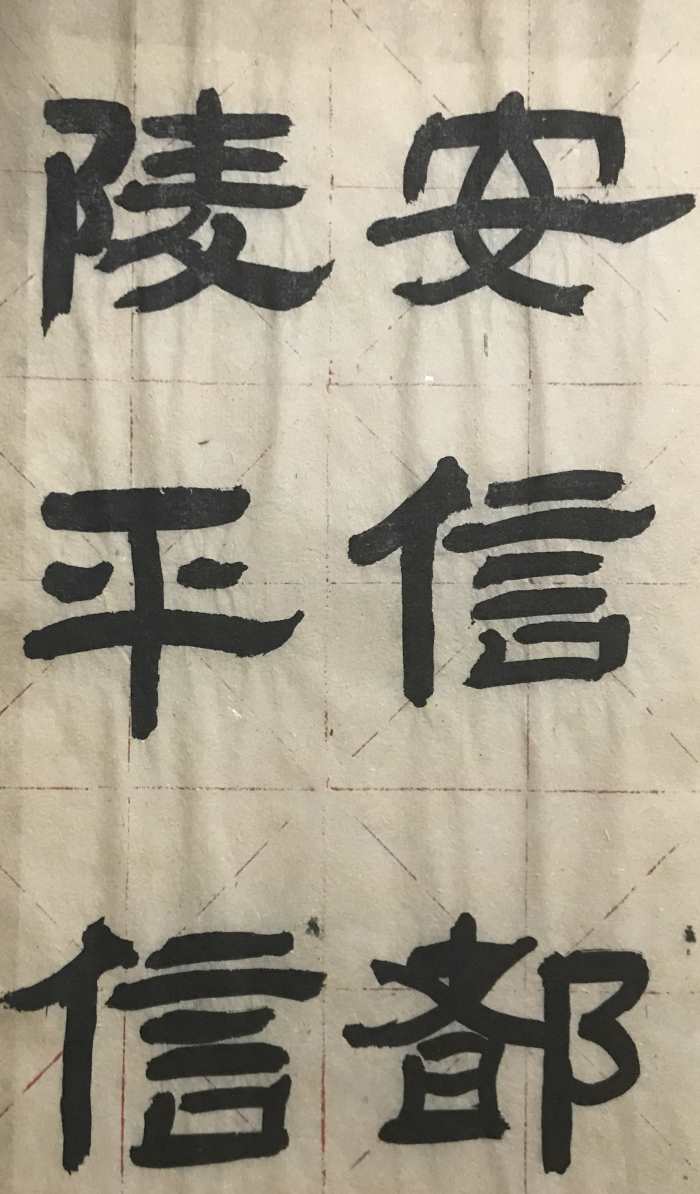 安信都
陵平信